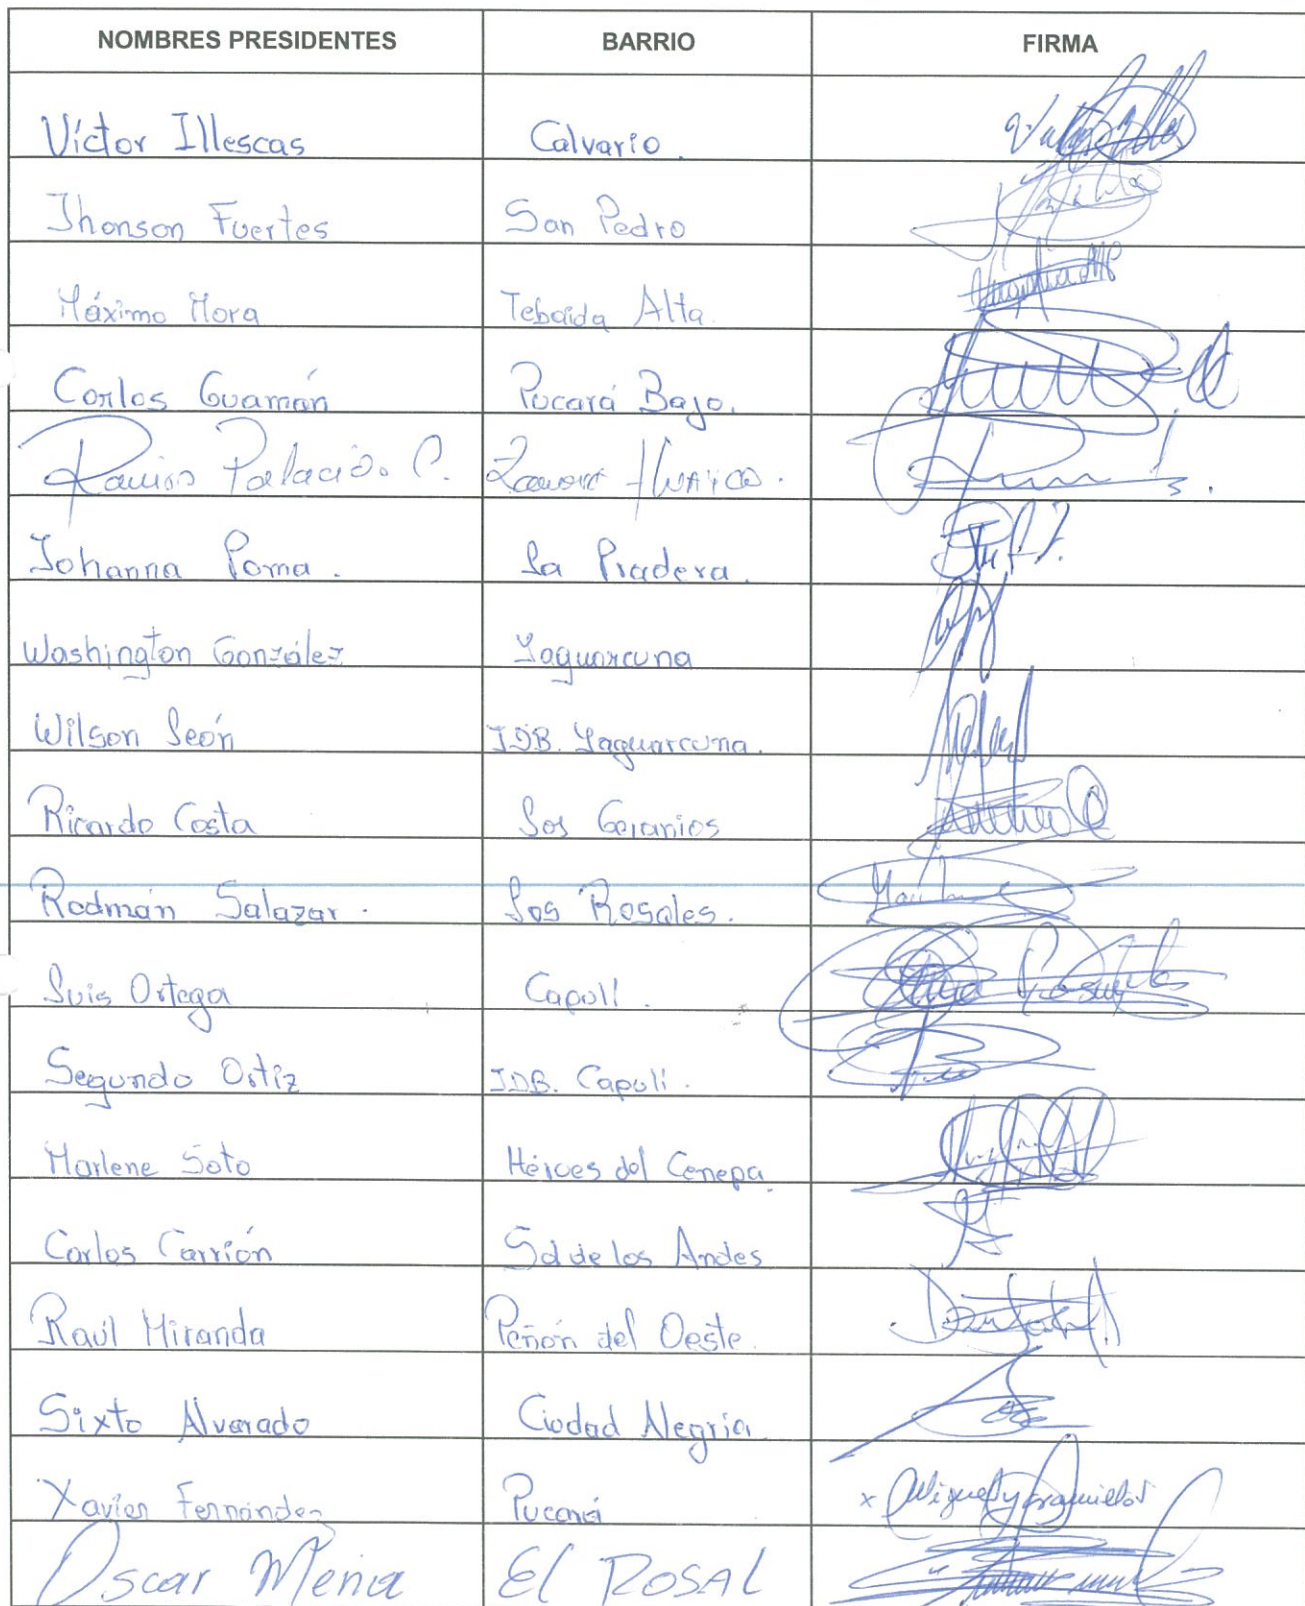 NOMBRES PRESIDENTES BARRIO FIRMA
Víctor Illescas Calvario.
Jhonson Fuertes San Pedro
Máximo Mora Tebaida Alta.
Carlos Guamán Pucará Bajo.
Ramiro Palacio. C. Zamora Huayco.
Johanna Poma. La Pradera.
Washington González Yaguarcuna
Wilson León JDB. Yaguarcuna.
Ricardo Costa Los Geranios
Rodmán Salazar. Los Rosales.
Luis Ortega Capulí.
Segundo Ortiz JDB. Capulí.
Marlene Soto Héroes del Cenepa.
Carlos Carrión Sol de los Andes
Raúl Miranda Peñón del Oeste.
Sixto Alvarado Ciudad Alegría.
Xavier Fernández Pucará x
Oscar Mena El ROSAL